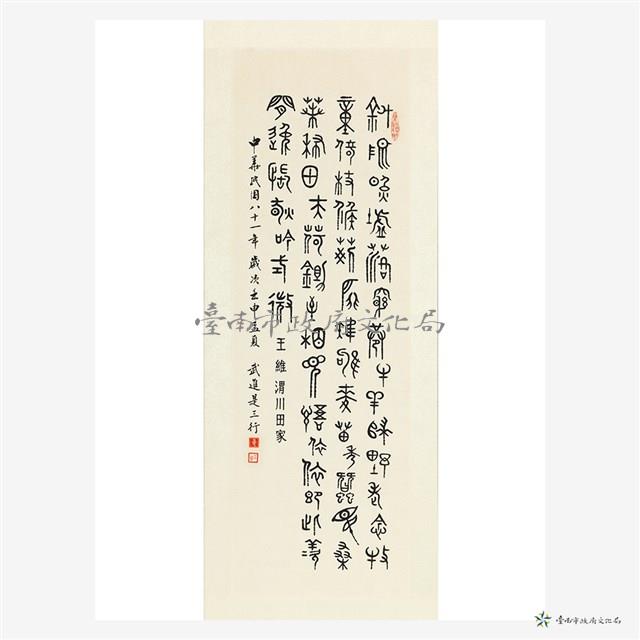 斜陽照墟落窮巷牛羊歸野老念牧
童倚杖候荊扉雉雊麥苗秀蠶眠桑
葉稀田夫荷鋤至相見語依依即此羨
閒逸悵然吟式微 王維渭川田家
中華民國八十一年歲次壬申孟夏 武進是三行
臺南市政府文化局
臺南市政府文化局